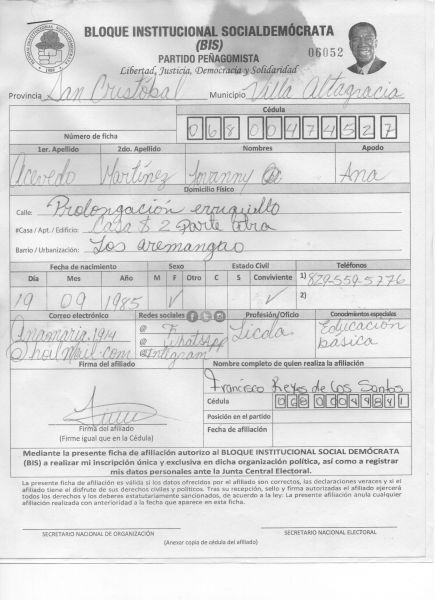 BLOQUE INSTITUCIONAL SOCIALDEMÓCRATA
(BIS)
PARTIDO PEÑAGOMISTA
06052
Libertad, Justicia, Democracia y Solidaridad
Provincia San Cristóbal Municipio Villa Altagracia
Cédula
Número de ficha 068 0047452 7
1er. Apellido 2do. Apellido Nombres Apodo
Acevedo Martínez Ana
Domicilio Físico
Calle: Prolongación
#Casa / Apt. / Edificio: Casa 82 Parte
Barrio / Urbanización: Los
Fecha de nacimiento Sexo Estado Civil Teléfonos
Día Mes Año M F Otro C S Conviviente 1) 829-559-5776
19 09 1985 ✓ ✓ 2)
Correo electrónico Redes sociales Profesión/Oficio Conocimientos especiales
Anamaria.1914 @ F. Licda Educación
@hoilmail.com @ WhatsApp básica
@ Intigram
Firma del afiliado Nombre completo de quien realiza la afiliación
Francisco Reyes de Los Santos
Cédula
Posición en el partido
Fecha de afiliación
Firma del afiliado
(Firme igual que en la Cédula)
Mediante la presente ficha de afiliación autorizo al BLOQUE INSTITUCIONAL SOCIAL DEMÓCRATA
(BIS) a realizar mi inscripción única y exclusiva en dicha organización política, así como a registrar
mis datos personales ante la Junta Central Electoral.
La presente ficha de afiliación es válida si los datos ofrecidos por el afiliado son correctos, las declaraciones veraces y si el
afiliado tiene el disfrute de sus derechos civiles y políticos. Tras su recepción, sello y firma autorizadas el afiliado ejercerá
todos los derechos y los deberes estatutariamente sancionados, de acuerdo a la ley: La presente afiliación anula cualquier
afiliación realizada con anterioridad a la fecha que aparece en esta ficha.
SECRETARIO NACIONAL DE ORGANIZACIÓN SECRETARIO NACIONAL ELECTORAL
(Anexar copia de cédula del afiliado)